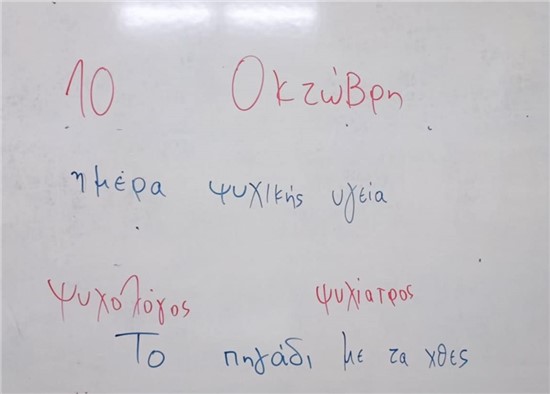 10 Οκτώβρη
ημέρα ψυχικής υγεία
ψυχολόγος ψυχίατρος
Το πηγάδι με τα χθες